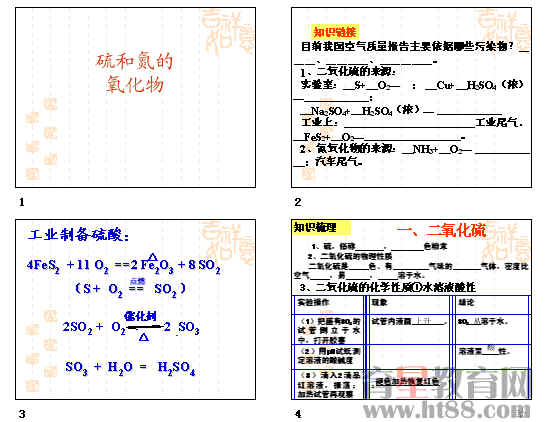 硫和氮的
氧化物
1
知识链接
目前我国空气质量报告主要依据哪些污染物？__
____、________、__________。
1、二氧化硫的来源:
实验室:__S+__O2— ； __Cu+__H2SO4（浓）
—____________；
__Na2SO4+__H2SO4（浓）— ____________
工业上:________________________工业尾气.
__FeS2+__O2—__________________
2、氮氧化物的来源:__NH3+__O2— __________
__；汽车尾气.
2
工业制备硫酸:
4FeS2 +11 O2 ==2 Fe2O3 + 8 SO2
△
点燃
（ S + O2 == SO2 ）
催化剂
2SO2 + O2 2 SO3
△
SO3 + H2O = H2SO4
3
知识梳理
一、二氧化硫
1、硫，俗称______，______色粉末
2、二氧化硫的物理性质
二氧化硫是____色、有______气味的______气体，密度比
空气____、易______、____溶于水。
3、二氧化硫的化学性质①水溶液酸性
实验操作 现象 结论
（1）把盛有SO2的试管倒立于水中，打开胶塞 试管内液面 上升 。 SO2 易溶于水。
（2）用pH试纸测定溶液的酸碱度 溶液呈 酸 性。
（3）滴入2滴品红溶液，振荡；加热试管再观察 褪色加热恢复红色
4
育星教育网
www.ht88.com